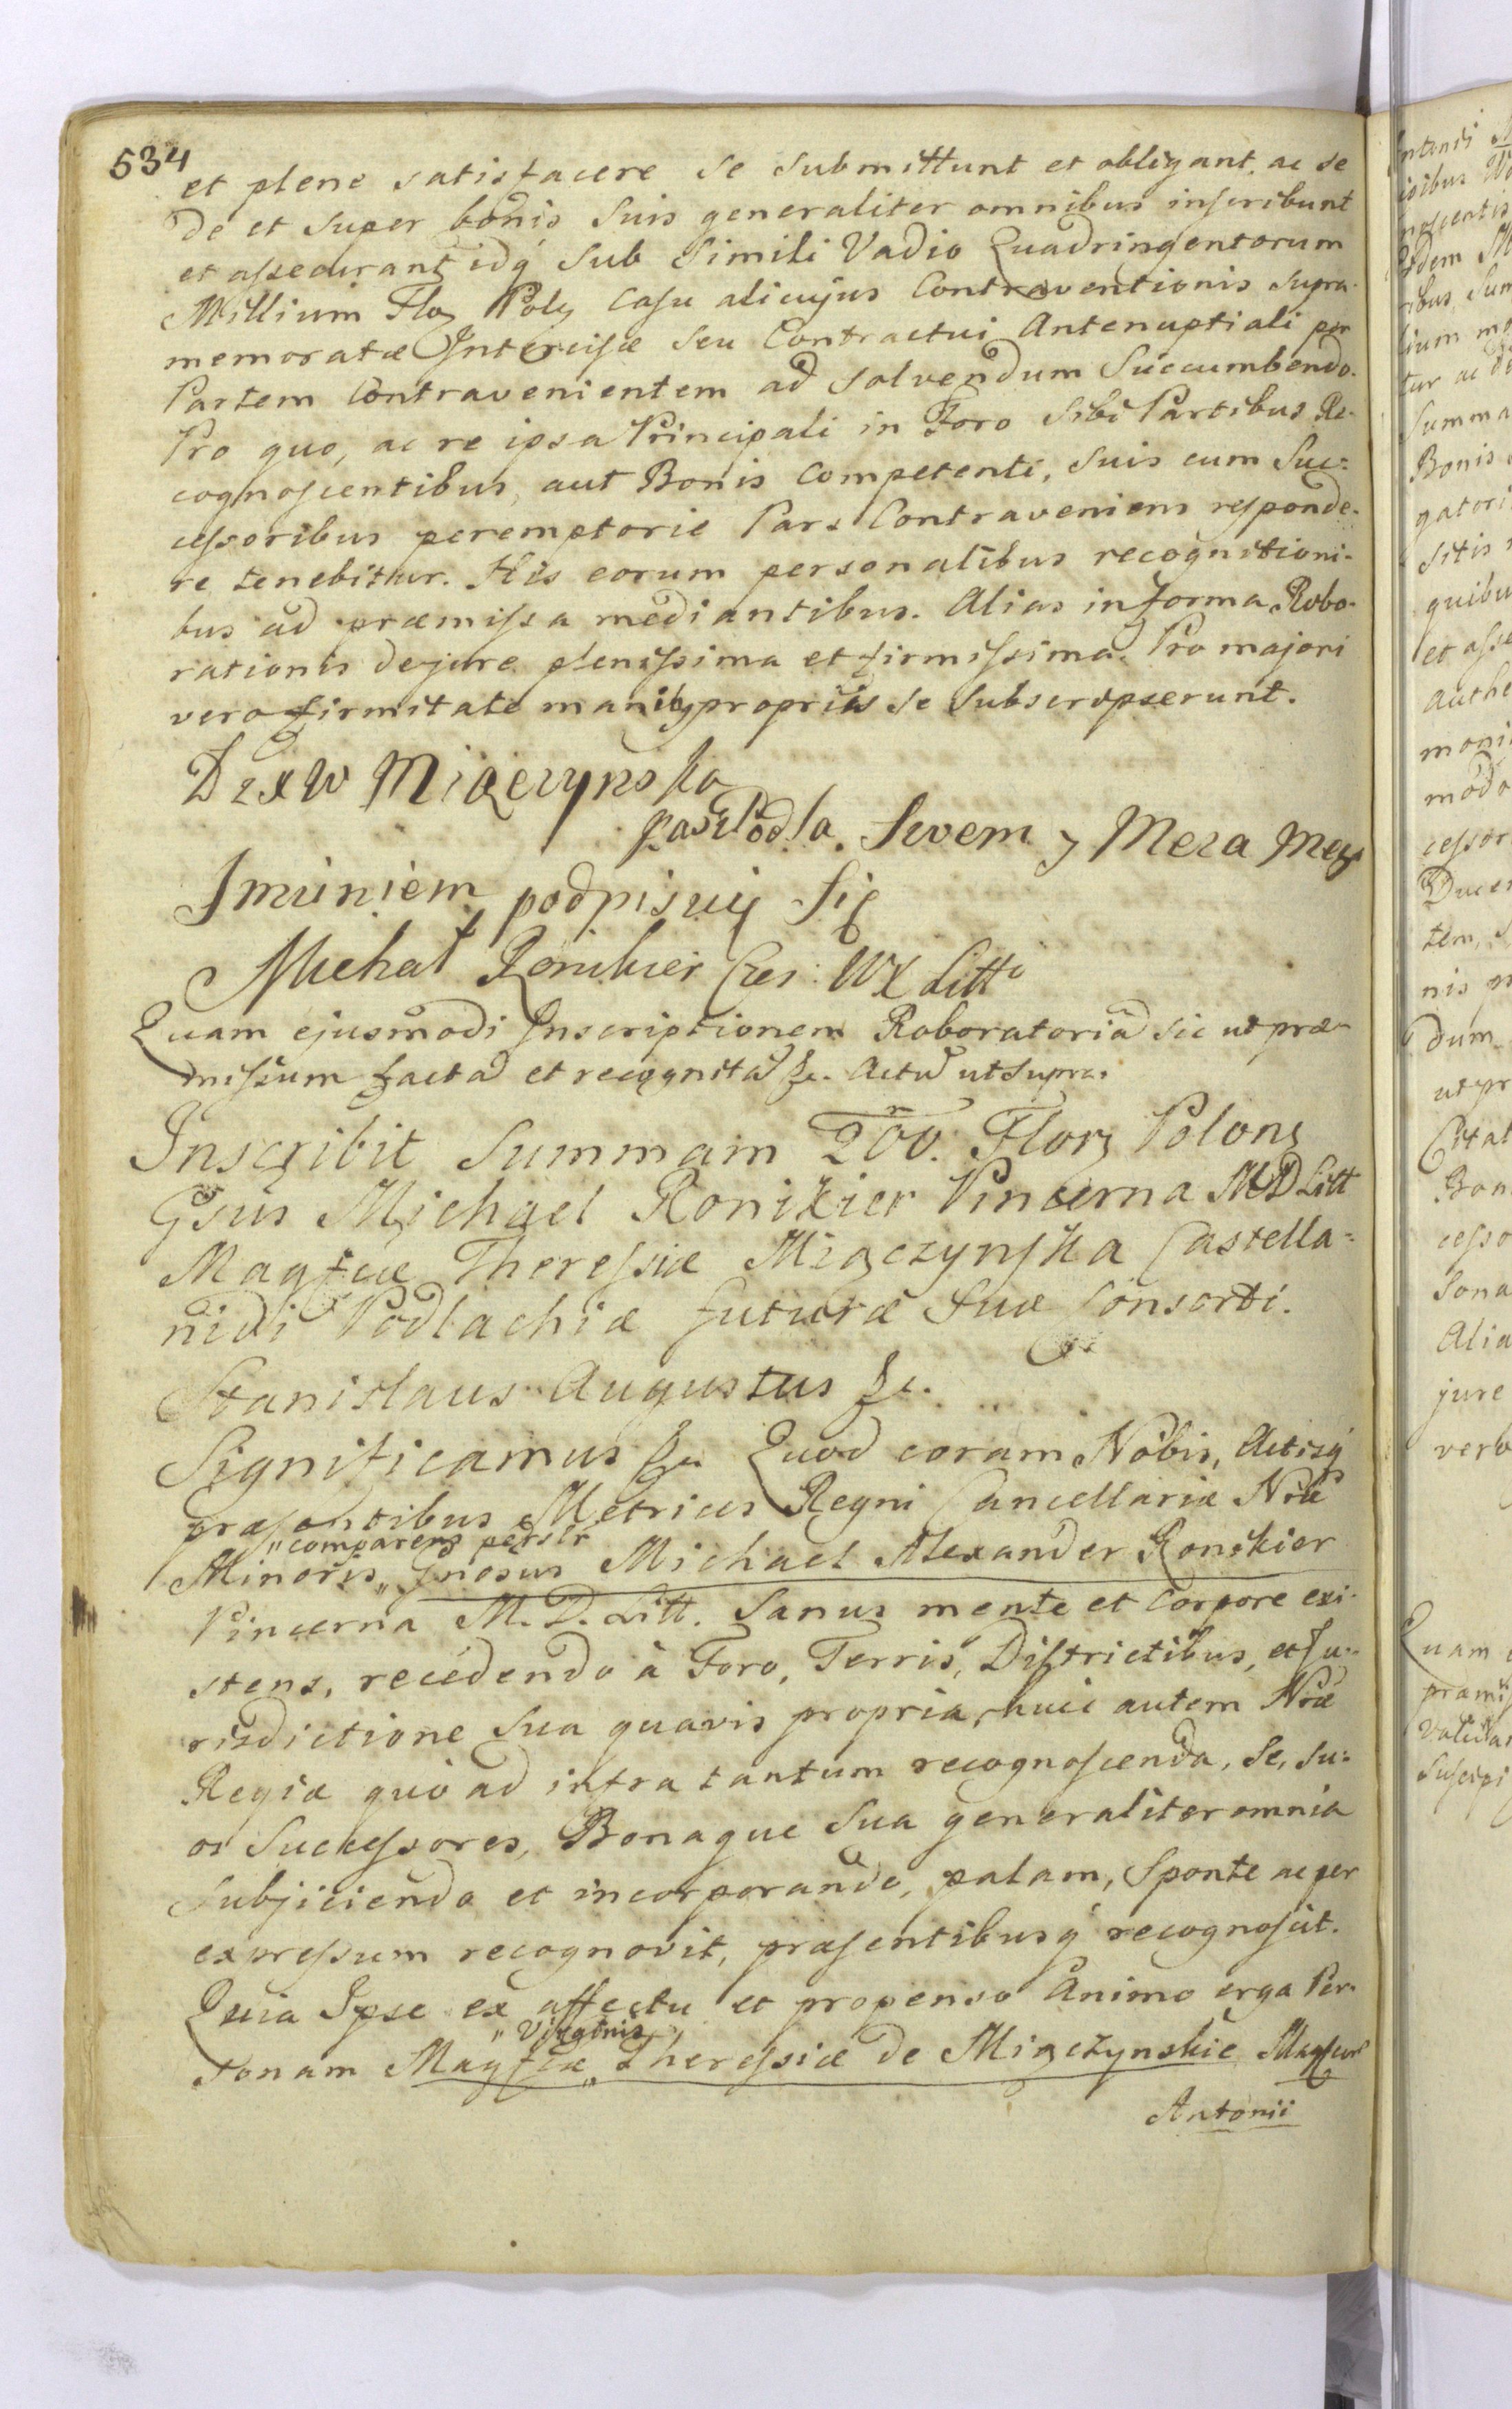 534
et plene satisfacere se submittunt et obligant, ac se
de et super bonis suis generaliter omnibus inscribunt
et assecurant, idq́ sub simili Vadio Quadringentorum
Millium Floꝝ Polꝝ Casu alicujus Contraventionis supra-
memoratæ Intercisæ seu Contractui Antenuptiali per
Partem Contravenientem ad solvendum Succumbendo.
Pro quo, ac re ipsa Principali in Foro sibi Partibus Re-
cognoscentibus, aut Bonis Competenti, suis cum Suc=
cessoribus peremptorie Pars Contraveniens responde-
re tenebitur. His eorum personalibus recognitioni-
bus ad præmissa mediantibus. Alias in forma Robo-
rationis de jure plenissima et firmissima. Pro majori
vero firmitate manibꝫ propriis se subscripserunt.
D z x W Miączynska
Kasz Podla. Swem y Meza Mego
Imieniem podpisuię się
Michał Ronikier Cześ: WX Litto
Quam ejusmodi Inscriptionem Roboratoriã sic ut præ-
missum factã et recognitã &c. Actũ ut supra.
Inscribit Summam 200. Florꝝ Polonꝝ
Gsus Michael Ronikier Pincerna MD Litt
Magfcæ Theressiæ Miączynska Castella=
nidi Podlachiæ futuræ suæ Consorti.
Stanislaus Augustus &c.
Significamus &c. Quod coram Nobis, Actisq́
præsentibus Metrices Regni Cancellariæ Nræ
"comparens persłr
Minoris,, Gnosus Michael Alexander Ronikier
Pincerna M. D. Litt. Sanus mente et Corpore exi-
stens, recedendo à Foro, Terris, Districtibus, et Ju-
risdictione sua quavis propria, huic autem Nræ
Regiæ quò ad infra tantum recognoscenda, se, su=
os Successores, Bonaque sua generaliter omnia
subjiciendo et incorporando, palam, sponte ac per
expressum recognovit, præsentibusq́ recognoscit.
Quia Ipse ex affectu et propenso Animo erga Per-
"Virginis
sonam Magfcæ,, Theressiæ de Miączynskie Magfcor
Antonii